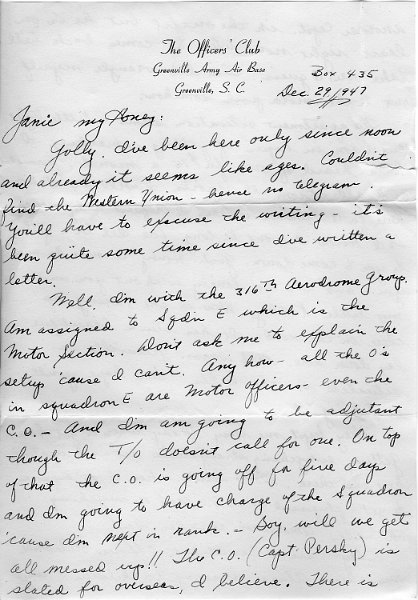 The Officers' Club
Greenville Army Air Base
Greenville, S. C.
Box 435
Dec 29, 1947
Janie my Honey:
Golly. I've been here only since noon
and already it seems like ages. Couldn't
find the Western Union - hence no telegram.
You'll have to excuse the writing - it's
been quite some time since I've written a
letter.
Well. I'm with the 316th Aerodrome Group.
Am assigned to Sqdn E which is the
Motor Section. Don't ask me to explain the
setup 'cause I can't. Any how - all the O's
in squadron E are Motor officers - even the
C.O. - And I'm am going to be adjutant
though the T/O doesn't call for one. On top
of that the C.O. is going off for five days
and I'm going to have charge of the Squadron
'cause I'm next in rank. - Boy, will we get
all messed up!! The C.O. (Capt. Persky) is
slated for overseas, I believe. There is